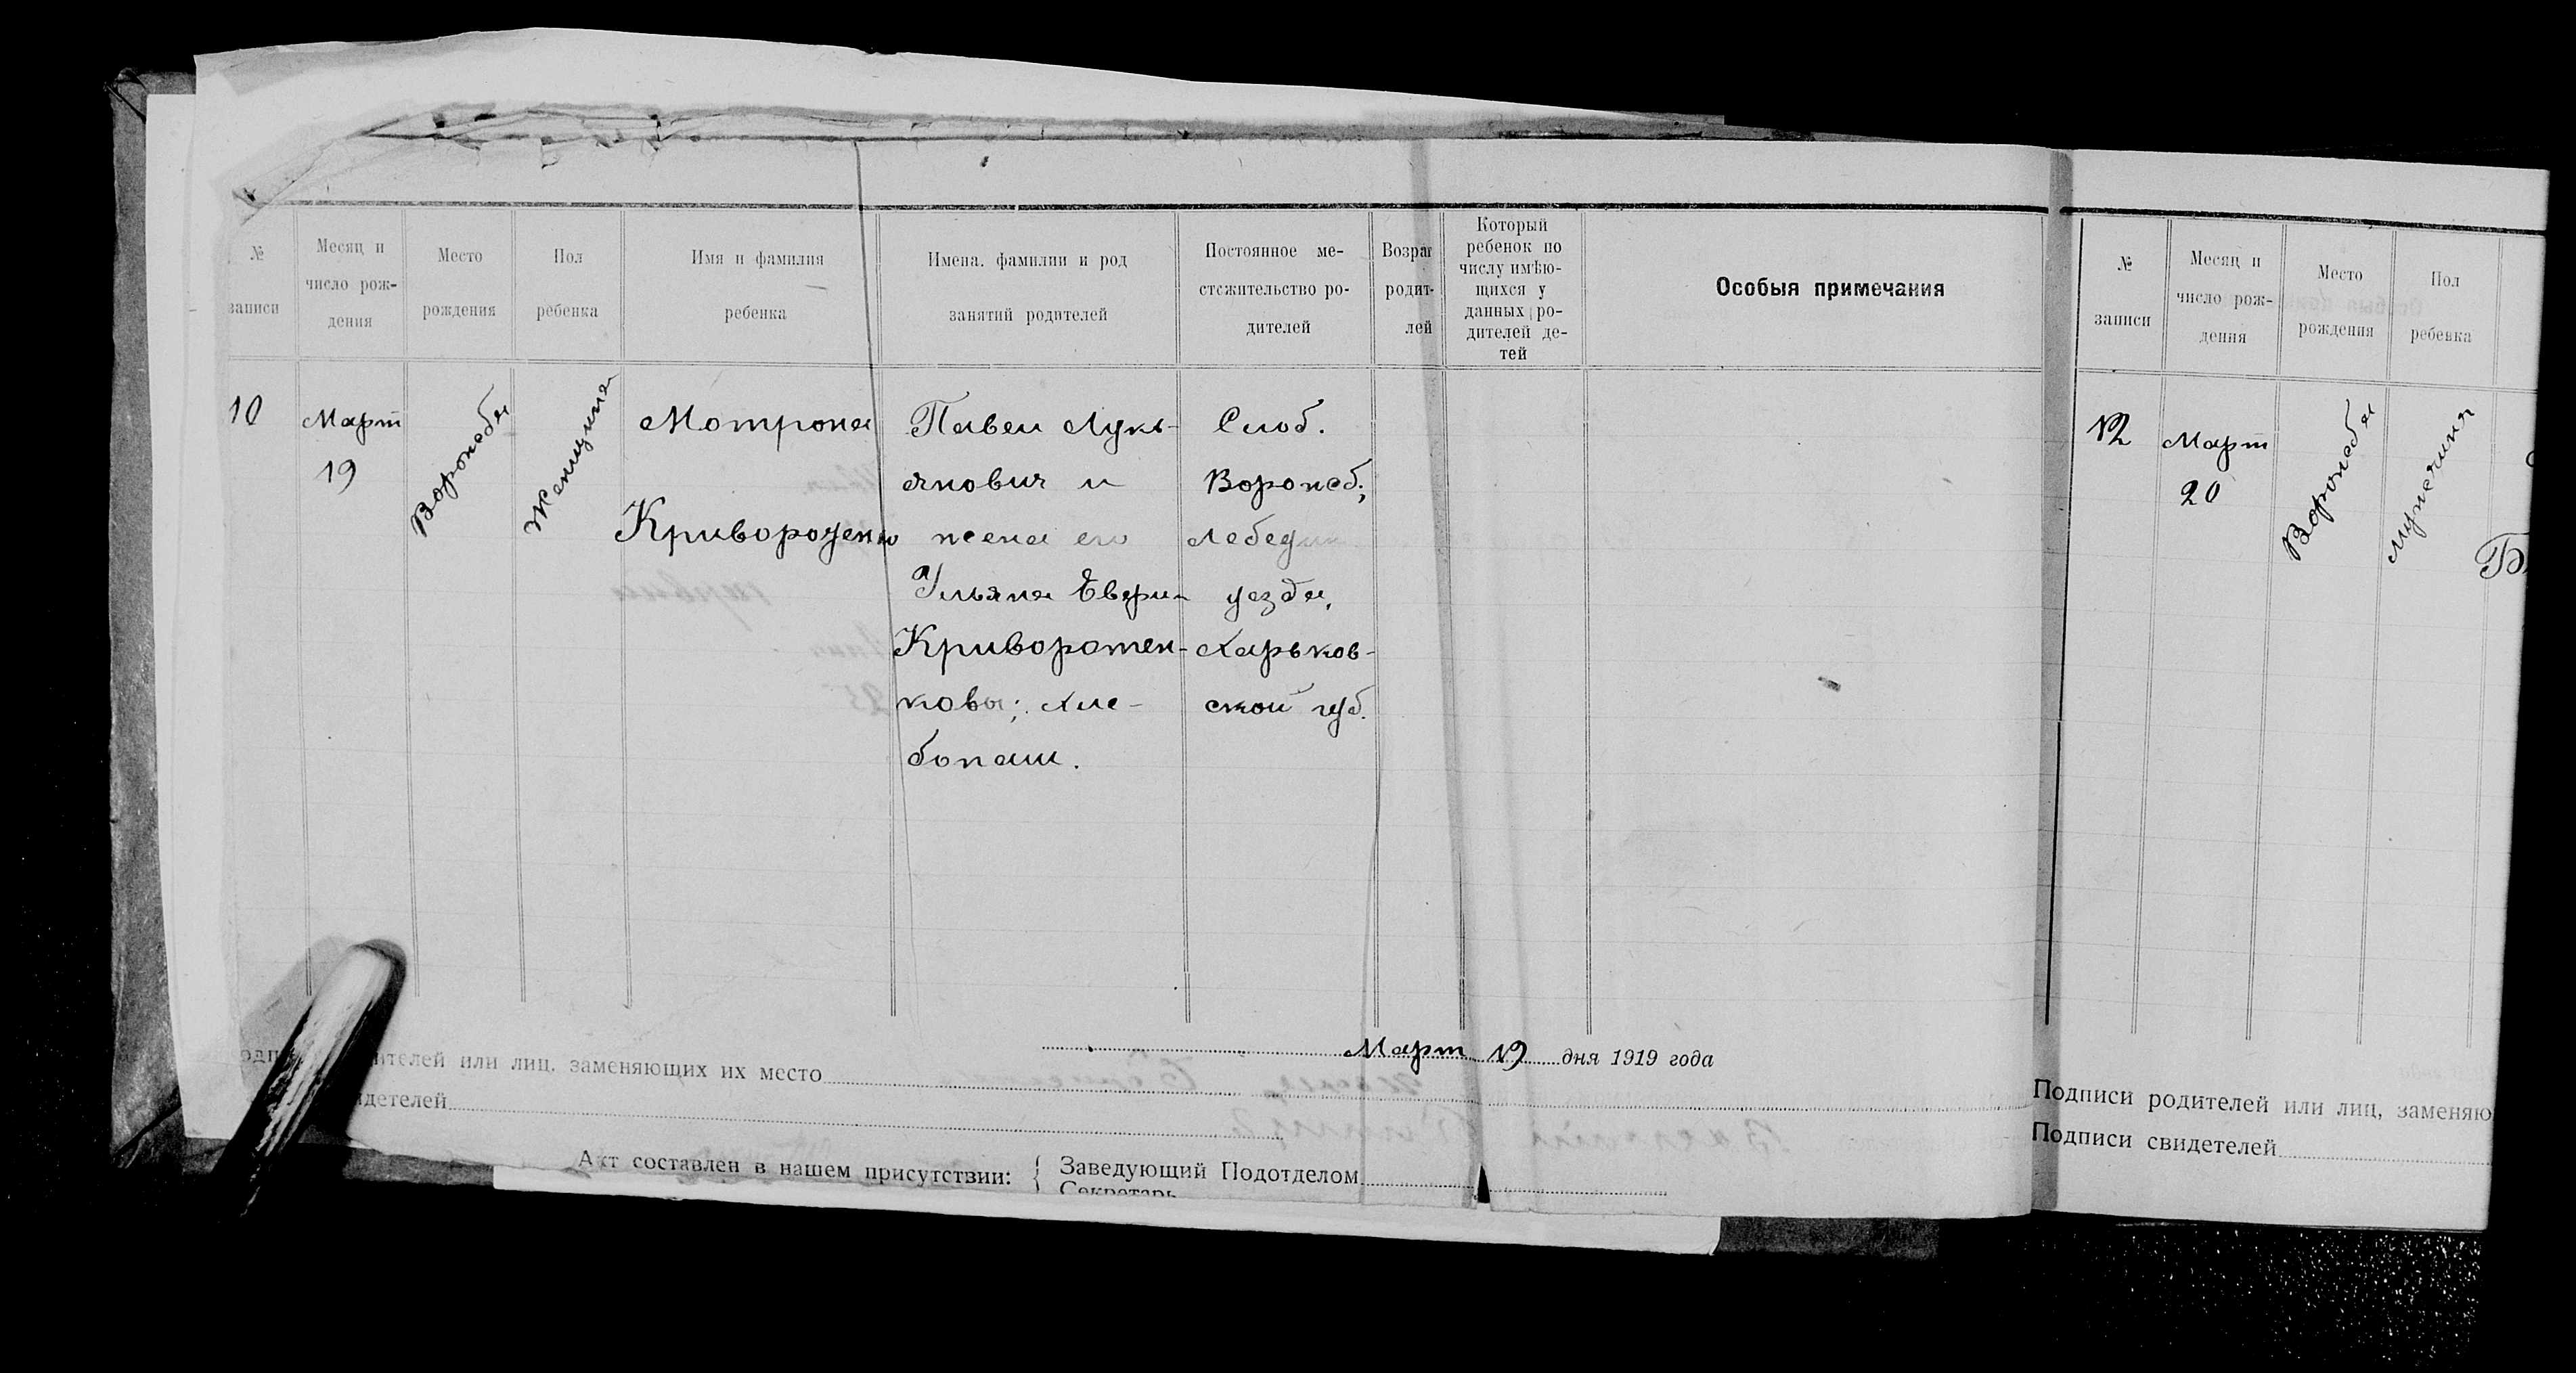 № записи
Месяц и число рож-дения
Место рождения
Пол ребенка
Имя и фамилия ребенка
Имена. фамилии и род занятий родителей
Постоянное ме-стожительство ро-дителей
Возраст родит-лей
Который ребенок по числу имѣю-щихся у данных ро-дителей де-тей
Особыя примечания
10
Март
19
Ворожба
Женщина
Мотрона
Павел Лукь-
янович и
жена его
Ульяна Еври-
Криворотен-
ковы; хле-
бопаш.
Слоб.
Ворожб.;
Лебедин
уезда,
Харьков-
ской губ.
Март 19 дня 1919 года
ителей или лиц, заменяющих их место
идетелей
Акт составлен в нашем присутствии: { Заведующий Подотделом
Секретарь
№ записи
Месяц и число рож-дения
Место рождения
Пол ребенка
12
Март
20
Ворожба
мужчина
Подписи родителей или лиц, заменяю
Подписи свидетелей